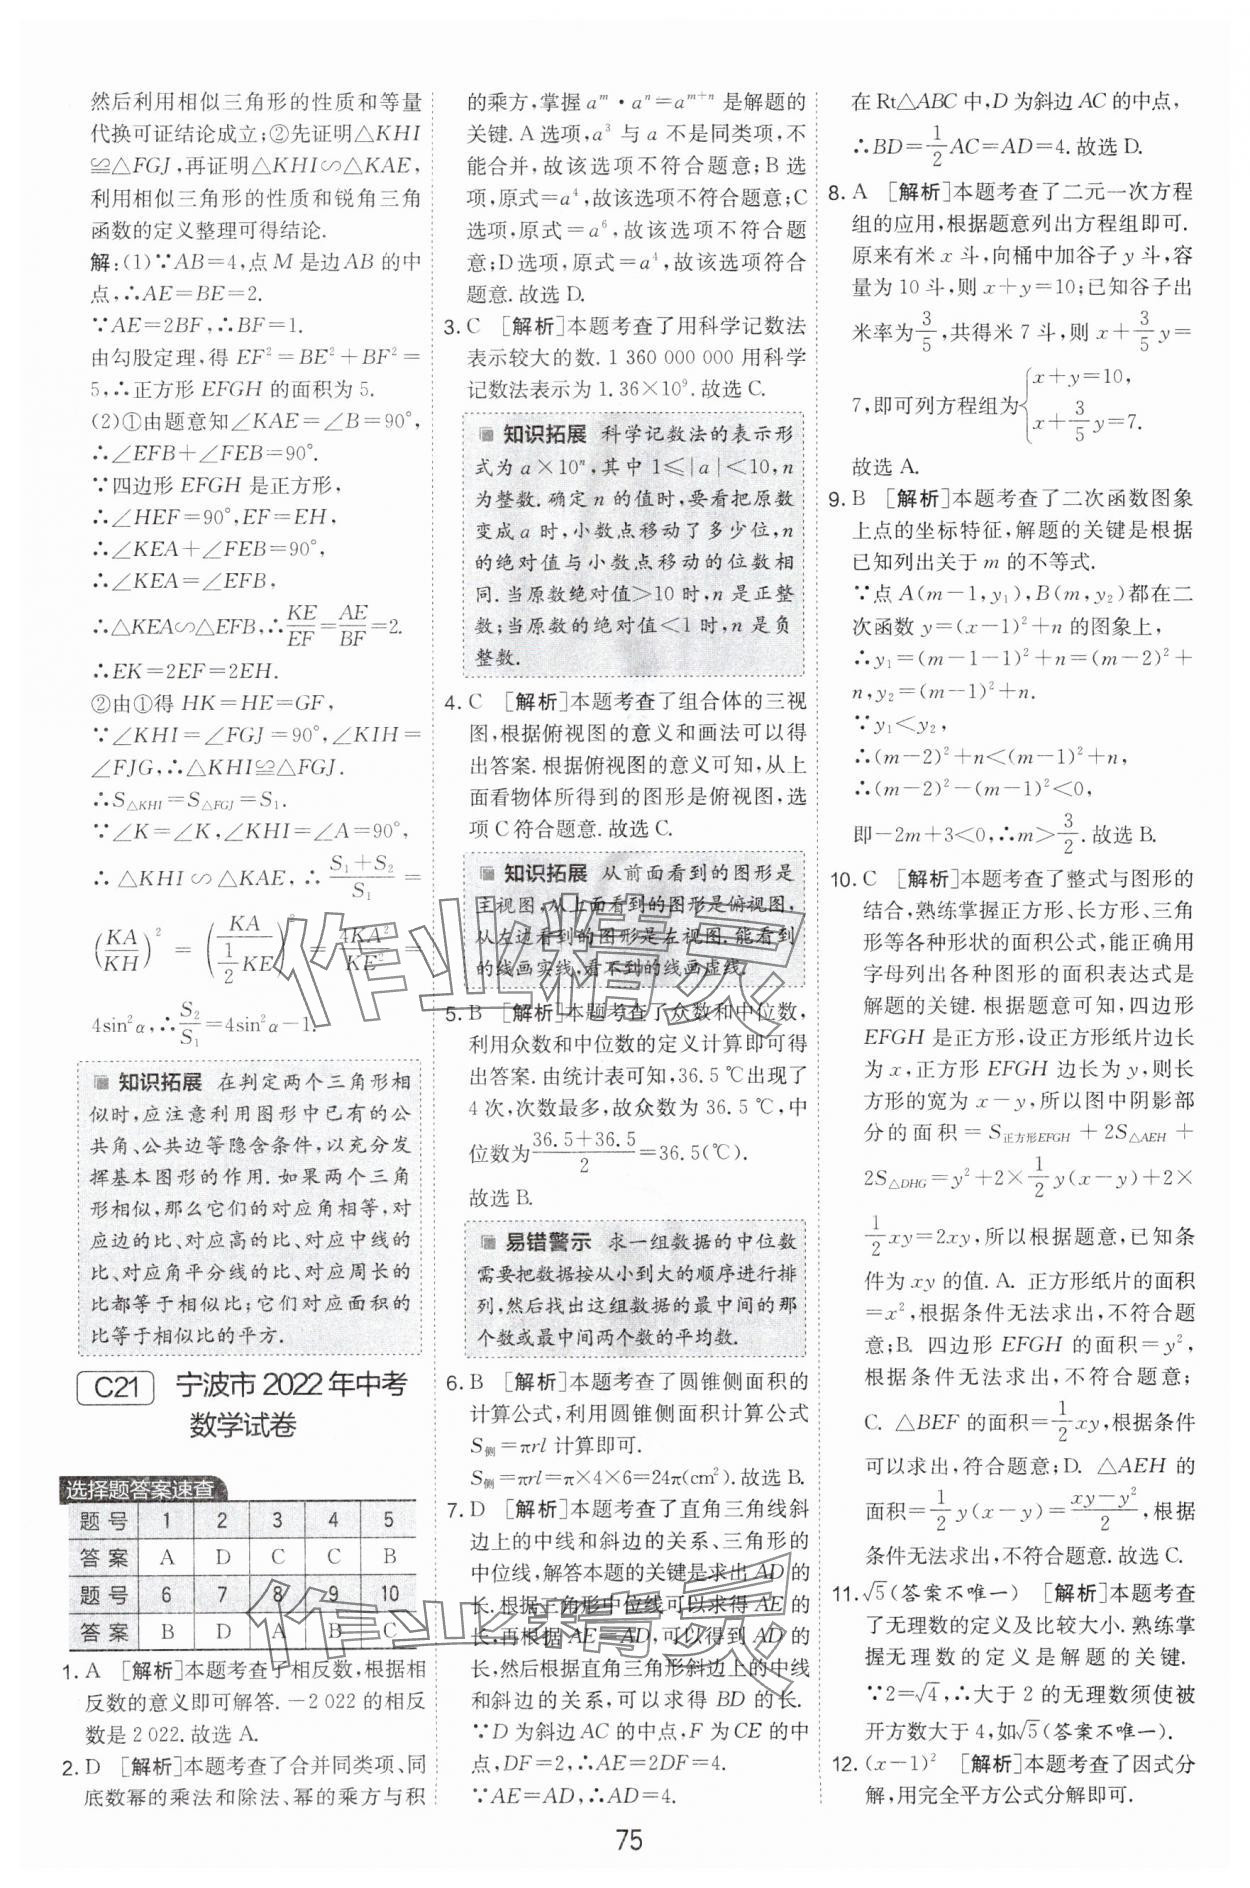 然后利用相似三角形的性质和等量
代换可证结论成立;②先证明△KHI
≌△FGJ,再证明△KHI∽△KAE,
利用相似三角形的性质和锐角三角
函数的定义整理可得结论.
解:(1)∵AB=4,点 M 是边AB 的中
点,∴AE=BE=2.
∵AE=2BF,∴BF=1.
由勾股定理,得 EF²=BE²+BF²=
5,∴正方形 EFGH 的面积为 5.
(2)①由题意知∠KAE=∠B=90°,
∴∠EFB+∠FEB=90°.
∵四边形 EFGH 是正方形,
∴∠HEF=90°,EF=EH,
∴∠KEA+∠FEB=90°,
∴∠KEA=∠EFB,
∴△KEA∽△EFB,∴KE/EF=AE/BF=2.
∴EK=2EF=2EH.
②由①得 HK=HE=GF,
∵∠KHI=∠FGJ=90°,∠KIH=
∠FJG,∴△KHI≌△FGJ.
∴S△KHI=S△FGJ=S₁.
∵∠K=∠K,∠KHI=∠A=90°,
∴△KHI∽△KAE,∴(S₁+S₂)/S₁=
(KA/KH)²=(KA/(1/2 KE))²=4KA²/KE²=
4sin²α,∴S₂/S₁=4sin²α-1.
知识拓展 在判定两个三角形相
似时,应注意利用图形中已有的公
共角、公共边等隐含条件,以充分发
挥基本图形的作用.如果两个三角
形相似,那么它们的对应角相等,对
应边的比、对应高的比、对应中线的
比、对应角平分线的比、对应周长的
比都等于相似比;它们对应面积的
比等于相似比的平方.
C21 宁波市 2022 年中考
数学试卷
选择题答案速查
题号 1 2 3 4 5
答案 A D C C B
题号 6 7 8 9 10
答案 B D A B C
1. A [解析]本题考查了相反数,根据相
反数的意义即可解答.-2 022 的相反
数是 2 022.故选 A.
2. D [解析]本题考查了合并同类项、同
底数幂的乘法和除法、幂的乘方与积
的乘方,掌握 aᵐ·aⁿ=aᵐ⁺ⁿ 是解题的
关键.A 选项,a³ 与 a 不是同类项,不
能合并,故该选项不符合题意;B 选
项,原式=a⁴,故该选项不符合题意;C
选项,原式=a⁶,故该选项不符合题
意;D 选项,原式=a⁴,故该选项符合
题意.故选 D.
3. C [解析]本题考查了用科学记数法
表示较大的数.1 360 000 000 用科学
记数法表示为 1.36×10⁹.故选 C.
知识拓展 科学记数法的表示形
式为 a×10ⁿ,其中 1≤|a|<10,n
为整数.确定 n 的值时,要看把原数
变成 a 时,小数点移动了多少位,n
的绝对值与小数点移动的位数相
同.当原数绝对值>10 时,n 是正整
数;当原数的绝对值<1 时,n 是负
整数.
4. C [解析]本题考查了组合体的三视
图,根据俯视图的意义和画法可以得
出答案.根据俯视图的意义可知,从上
面看物体所得到的图形是俯视图,选
项 C 符合题意.故选 C.
知识拓展 从前面看到的图形是
主视图,从上面看到的图形是俯视图,
从左边看到的图形是左视图.能看到
的线画实线,看不到的线画虚线.
5. B [解析]本题考查了众数和中位数,
利用众数和中位数的定义计算即可得
出答案.由统计表可知,36.5 ℃出现了
4 次,次数最多,故众数为 36.5 ℃,中
位数为(36.5+36.5)/2=36.5(℃).
故选 B.
易错警示 求一组数据的中位数
需要把数据按从小到大的顺序进行排
列,然后找出这组数据的最中间的那
个数或最中间两个数的平均数.
6. B [解析]本题考查了圆锥侧面积的
计算公式,利用圆锥侧面积计算公式
S侧=πrl 计算即可.
S侧=πrl=π×4×6=24π(cm²).故选 B.
7. D [解析]本题考查了直角三角线斜
边上的中线和斜边的关系、三角形的
中位线,解答本题的关键是求出 AD 的
长.根据三角形中位线可以求得 AE 的
长,再根据 AE=AD,可以得到 AD 的
长,然后根据直角三角形斜边上的中线
和斜边的关系,可以求得 BD 的长.
∵D 为斜边 AC 的中点,F 为 CE 的中
点,DF=2,∴AE=2DF=4.
∵AE=AD,∴AD=4.
在 Rt△ABC 中,D 为斜边 AC 的中点,
∴BD=1/2 AC=AD=4.故选 D.
8. A [解析]本题考查了二元一次方程
组的应用,根据题意列出方程组即可.
原来有米 x 斗,向桶中加谷子 y 斗,容
量为 10 斗,则 x+y=10;已知谷子出
米率为3/5,共得米 7 斗,则 x+3/5 y=
7,即可列方程组为{x+y=10,
x+3/5 y=7.
故选 A.
9. B [解析]本题考查了二次函数图象
上点的坐标特征,解题的关键是根据
已知列出关于 m 的不等式.
∵点 A(m-1,y₁),B(m,y₂)都在二
次函数 y=(x-1)²+n 的图象上,
∴y₁=(m-1-1)²+n=(m-2)²+
n,y₂=(m-1)²+n.
∵y₁<y₂,
∴(m-2)²+n<(m-1)²+n,
∴(m-2)²-(m-1)²<0,
即-2m+3<0,∴m>3/2.故选 B.
10. C [解析]本题考查了整式与图形的
结合,熟练掌握正方形、长方形、三角
形等各种形状的面积公式,能正确用
字母列出各种图形的面积表达式是
解题的关键.根据题意可知,四边形
EFGH 是正方形,设正方形纸片边长
为 x,正方形 EFGH 边长为 y,则长
方形的宽为 x-y,所以图中阴影部
分的面积=S正方形EFGH+2S△AEH+
2S△DHG=y²+2×1/2 y(x-y)+2×
1/2 xy=2xy,所以根据题意,已知条
件为 xy 的值.A. 正方形纸片的面积
=x²,根据条件无法求出,不符合题
意;B. 四边形 EFGH 的面积=y²,
根据条件无法求出,不符合题意;
C. △BEF 的面积=1/2 xy,根据条件
可以求出,符合题意;D. △AEH 的
面积=1/2 y(x-y)=(xy-y²)/2,根据
条件无法求出,不符合题意.故选 C.
11. √5(答案不唯一) [解析]本题考查
了无理数的定义及比较大小.熟练掌
握无理数的定义是解题的关键.
∵2=√4,∴大于 2 的无理数须使被
开方数大于 4,如√5(答案不唯一).
12. (x-1)² [解析]本题考查了因式分
解,用完全平方公式分解即可.
作业精灵
作业精灵
75